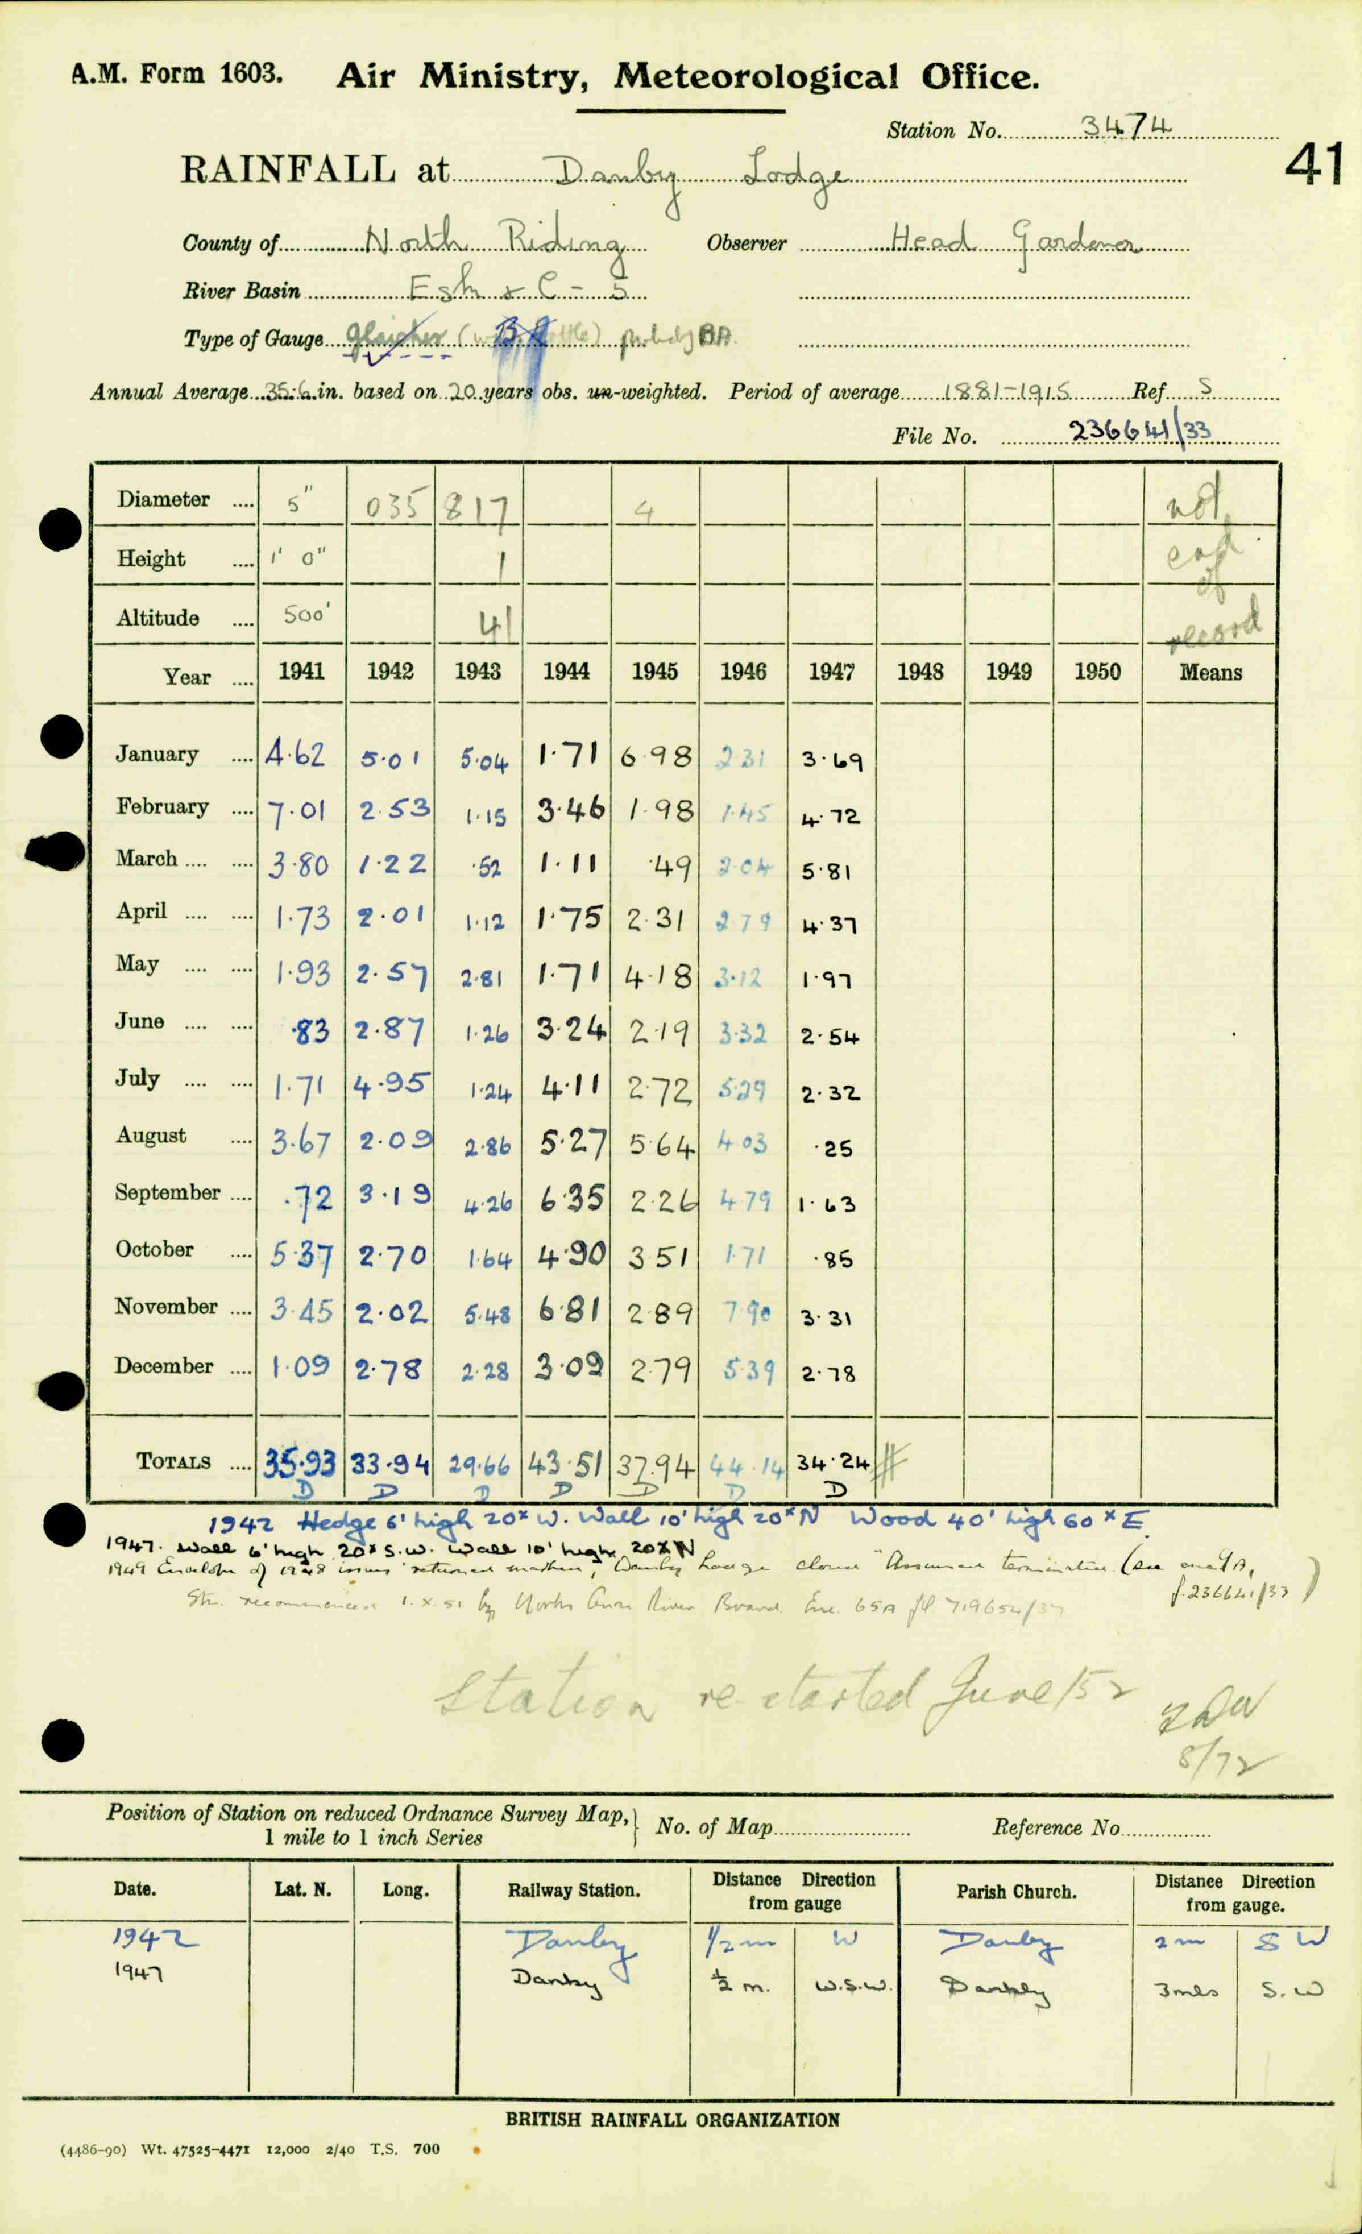 A.M. Form 1603. Air Ministry, Meteorological Office.
Station No. 3474
41
RAINFALL at Danby Lodge
County of North Riding Observer Head Gardener
River Basin Esk & C - 5
Type of Gauge Glaisher ( BA probably BA
Annual Average 35.6 in. based on 20 years obs. un-weighted. Period of average 1881-1915 Ref. S
File No. 236641/33
Diameter .... 5" 035 817 4 not
Height .... 1' 0" 1 end of
Altitude .... 500' 41 record
Year .... 1941 1942 1943 1944 1945 1946 1947 1948 1949 1950 Means
January .... 4.62 5.01 5.04 1.71 6.98 2.31 3.69
February .... 7.01 2.53 1.15 3.46 1.98 1.45 4.72
March .... .... 3.80 1.22 .52 1.11 .49 2.04 5.81
April .... .... 1.73 2.01 1.12 1.75 2.31 2.79 4.37
May .... .... 1.93 2.57 2.81 1.71 4.18 3.12 1.97
June .... .... .83 2.87 1.26 3.24 2.19 3.32 2.54
July .... .... 1.71 4.95 1.24 4.11 2.72 5.29 2.32
August .... 3.67 2.09 2.86 5.27 5.64 4.03 .25
September .... .72 3.19 4.26 6.35 2.26 4.79 1.63
October .... 5.37 2.70 1.64 4.90 3.51 1.71 .85
November .... 3.45 2.02 5.48 6.81 2.89 7.90 3.31
December .... 1.09 2.78 2.28 3.09 2.79 5.39 2.78
TOTALS .... 35.93 33.94 29.66 43.51 37.94 44.14 34.24 #
D D D D D D D
1942 Hedge 6' high 20x W. Wall 10' high 20x N Wood 40' high 60x E.
1947. Wall 6' high 20x S.W. Wall 10' high 20x N
1949 Envelope of 1948 returned marked "Danby Lodge closed" Assumed termination (see encl 9A,
f. 236641/33)
Stn. recommenced 1.X.51 by Yorks Ouse River Board. Enc. 65A fl. 719654/37
Station re started June/52
8/72
Position of Station on reduced Ordnance Survey Map, } No. of Map Reference No
1 mile to 1 inch Series
Date. Lat. N. Long. Railway Station. Distance Direction from gauge Parish Church. Distance Direction from gauge.
1942 Danby 1/2 m W Danby 2 m S W
1947 Danby 1/2 m. W.S.W. Danby 3 mls S.W
BRITISH RAINFALL ORGANIZATION
(4486-90) Wt. 47525-4471 12,000 2/40 T.S. 700